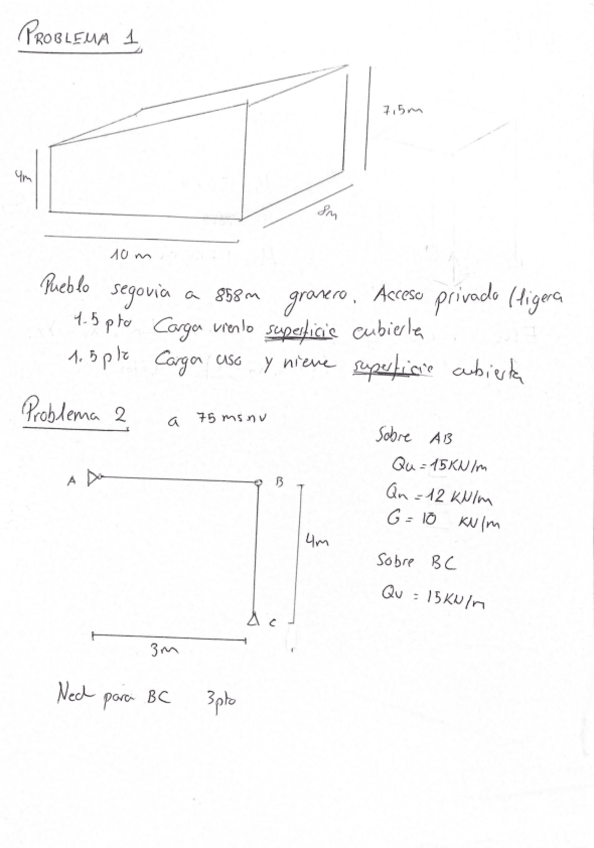 PROBLEMA 1
7,5m
4m
8m
10 m
Pueblo segovia a 858m granero. Acceso privado (ligera
1.5 pto Carga viento superficie cubierta
1.5 pto Carga uso y nieve superficie cubierta
Problema 2 a 75 msnv
A B
4m
C
3m
Sobre AB
Qu = 15KN/m
Qn = 12 KN/m
G = 10 KN/m
Sobre BC
Qv = 15KN/m
Ned para BC 3pto